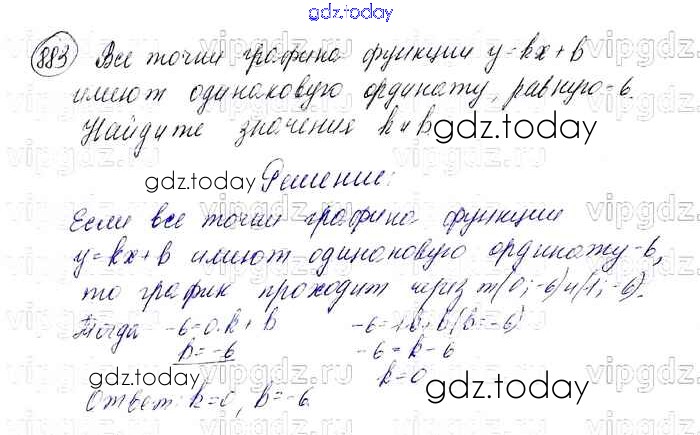 gdz.today
883 Все точки графика функции y=kx+b
имеют одинаковую ординату, равную -6.
Найдите значения k и b
gdz.today
gdz.today Решение:
Если все точки графика функции
y=kx+b имеют одинаковую ординату -6,
то график проходит через т(0;-6) и (1;-6).
Тогда -6=0·k+b
b=-6
-6=1·k+b (b=-6)
-6=k-6
k=0
gdz.today
gdz.today
Ответ: k=0, b=-6